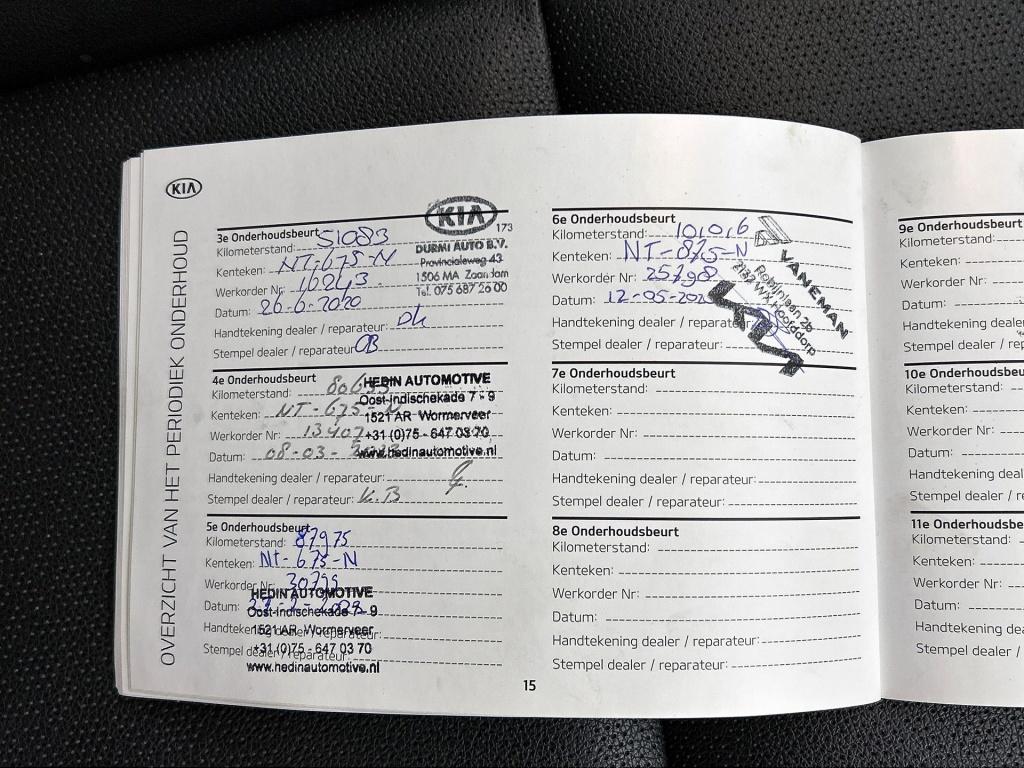 KIA
OVERZICHT VAN HET PERIODIEK ONDERHOUD
3e Onderhoudsbeurt
Kilometerstand: 51083
Kenteken: NT-675-N
Werkorder Nr: 10243
Datum: 26-6-2020
Handtekening dealer / reparateur:
Stempel dealer / reparateur:
KIA
173
DURMI AUTO B.V.
Provincialeweg 43
1506 MA Zaandam
Tel. 075 687 26 00
4e Onderhoudsbeurt
Kilometerstand:
Kenteken: NT-675-N
Werkorder Nr: 13407
Datum: 08-03-
Handtekening dealer / reparateur:
Stempel dealer / reparateur: K.B
HEDIN AUTOMOTIVE
Oost-indischekade 7 - 9
1521 AR Wormerveer
+31 (0)75 - 647 03 70
www.hedinautomotive.nl
5e Onderhoudsbeurt
Kilometerstand: 87975
Kenteken: NT-675-N
Werkorder Nr:
Datum:
Handtekening dealer / reparateur:
Stempel dealer / reparateur:
HEDIN AUTOMOTIVE
Oost-indischekade 7 - 9
1521 AR Wormerveer
+31 (0)75 - 647 03 70
www.hedinautomotive.nl
6e Onderhoudsbeurt
Kilometerstand: 101016
Kenteken: NT-875-N
Werkorder Nr: 25798
Datum: 12-05-202
Handtekening dealer / reparateur:
Stempel dealer / reparateur:
VANEMAN
Robijnlaan 2b
2132 WX Hoofddorp
KIA
7e Onderhoudsbeurt
Kilometerstand:
Kenteken:
Werkorder Nr:
Datum:
Handtekening dealer / reparateur:
Stempel dealer / reparateur:
8e Onderhoudsbeurt
Kilometerstand:
Kenteken:
Werkorder Nr:
Datum:
Handtekening dealer / reparateur:
Stempel dealer / reparateur:
15
9e Onderhoudsbeu
Kilometerstand:
Kenteken:
Werkorder Nr:
Datum:
Handtekening deale
Stempel dealer / rep
10e Onderhoudsbeu
Kilometerstand:
Kenteken:
Werkorder Nr:
Datum:
Handtekening dealer
Stempel dealer / re
11e Onderhoudsbe
Kilometerstand:
Kenteken:
Werkorder Nr:
Datum:
Handtekening deal
Stempel dealer / r